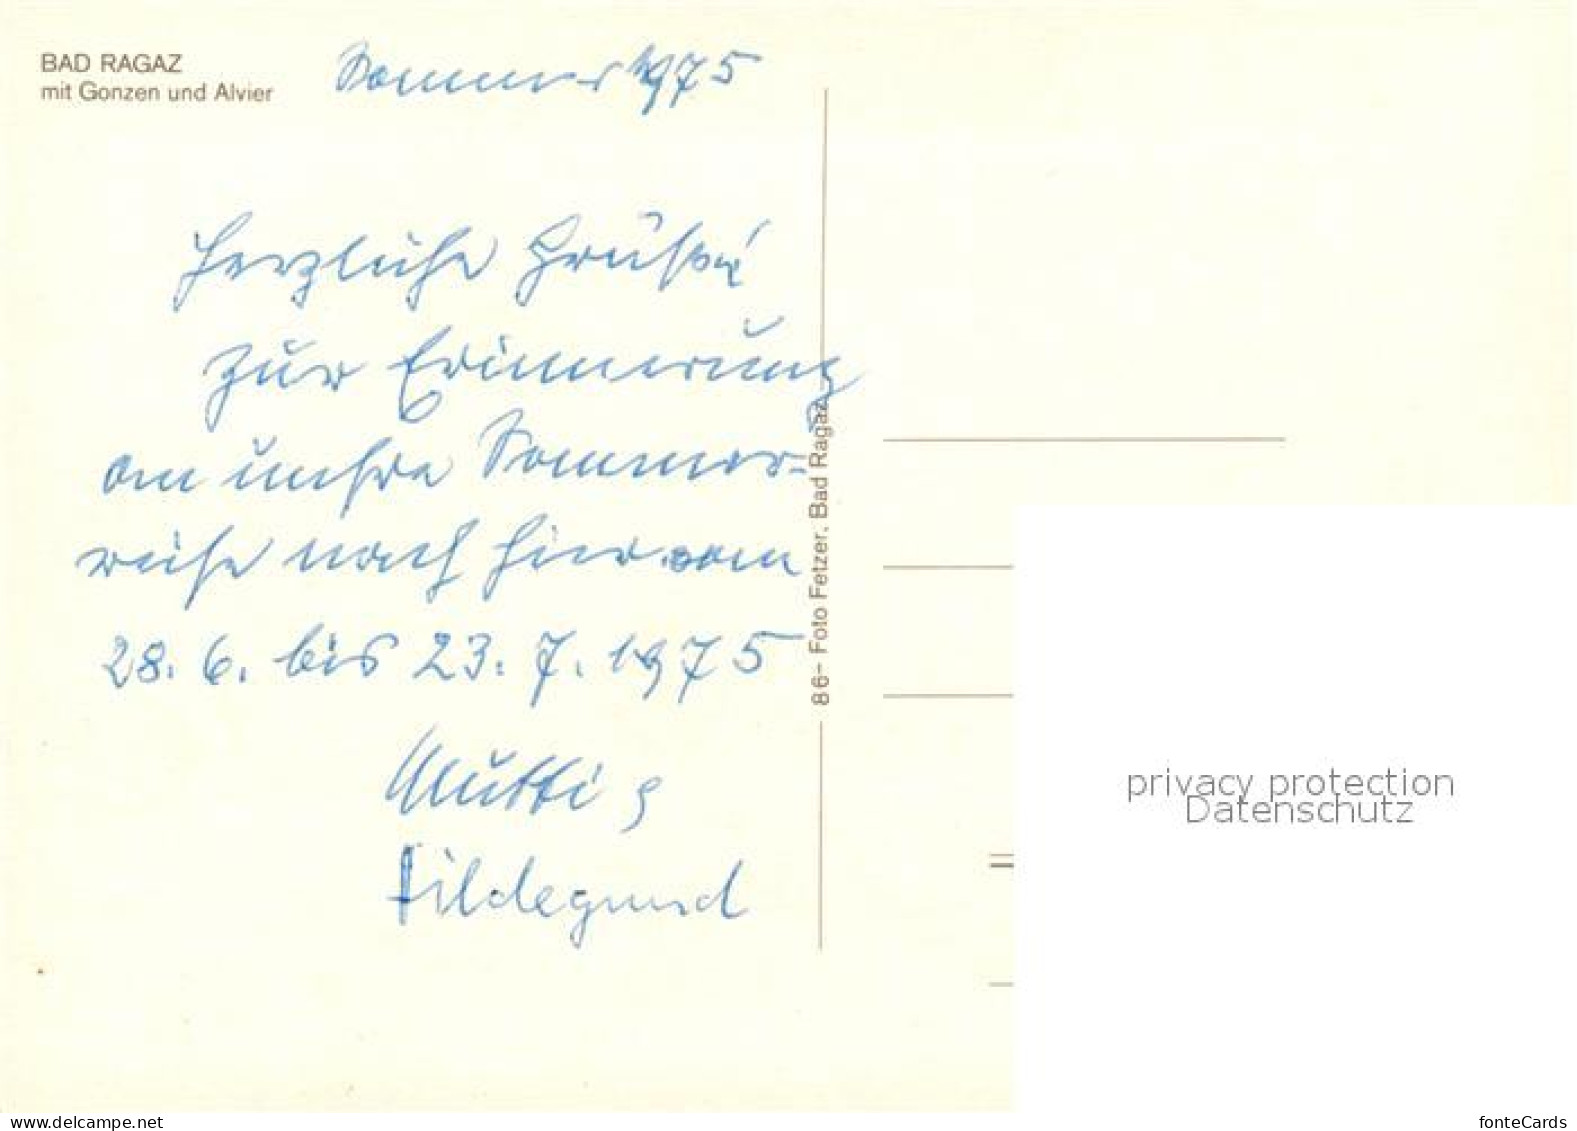 BAD RAGAZ
mit Gonzen und Alvier
Sommer 1975
Herzliche Grüße
zur Erinnerung
an unsre Sommer-
reise nach hier vom
28. 6. bis 23. 7. 1975
Mutti
Hildegund
86- Foto Fetzer, Bad Ragaz
privacy protection
Datenschutz
www.delcampe.net
fonteCards